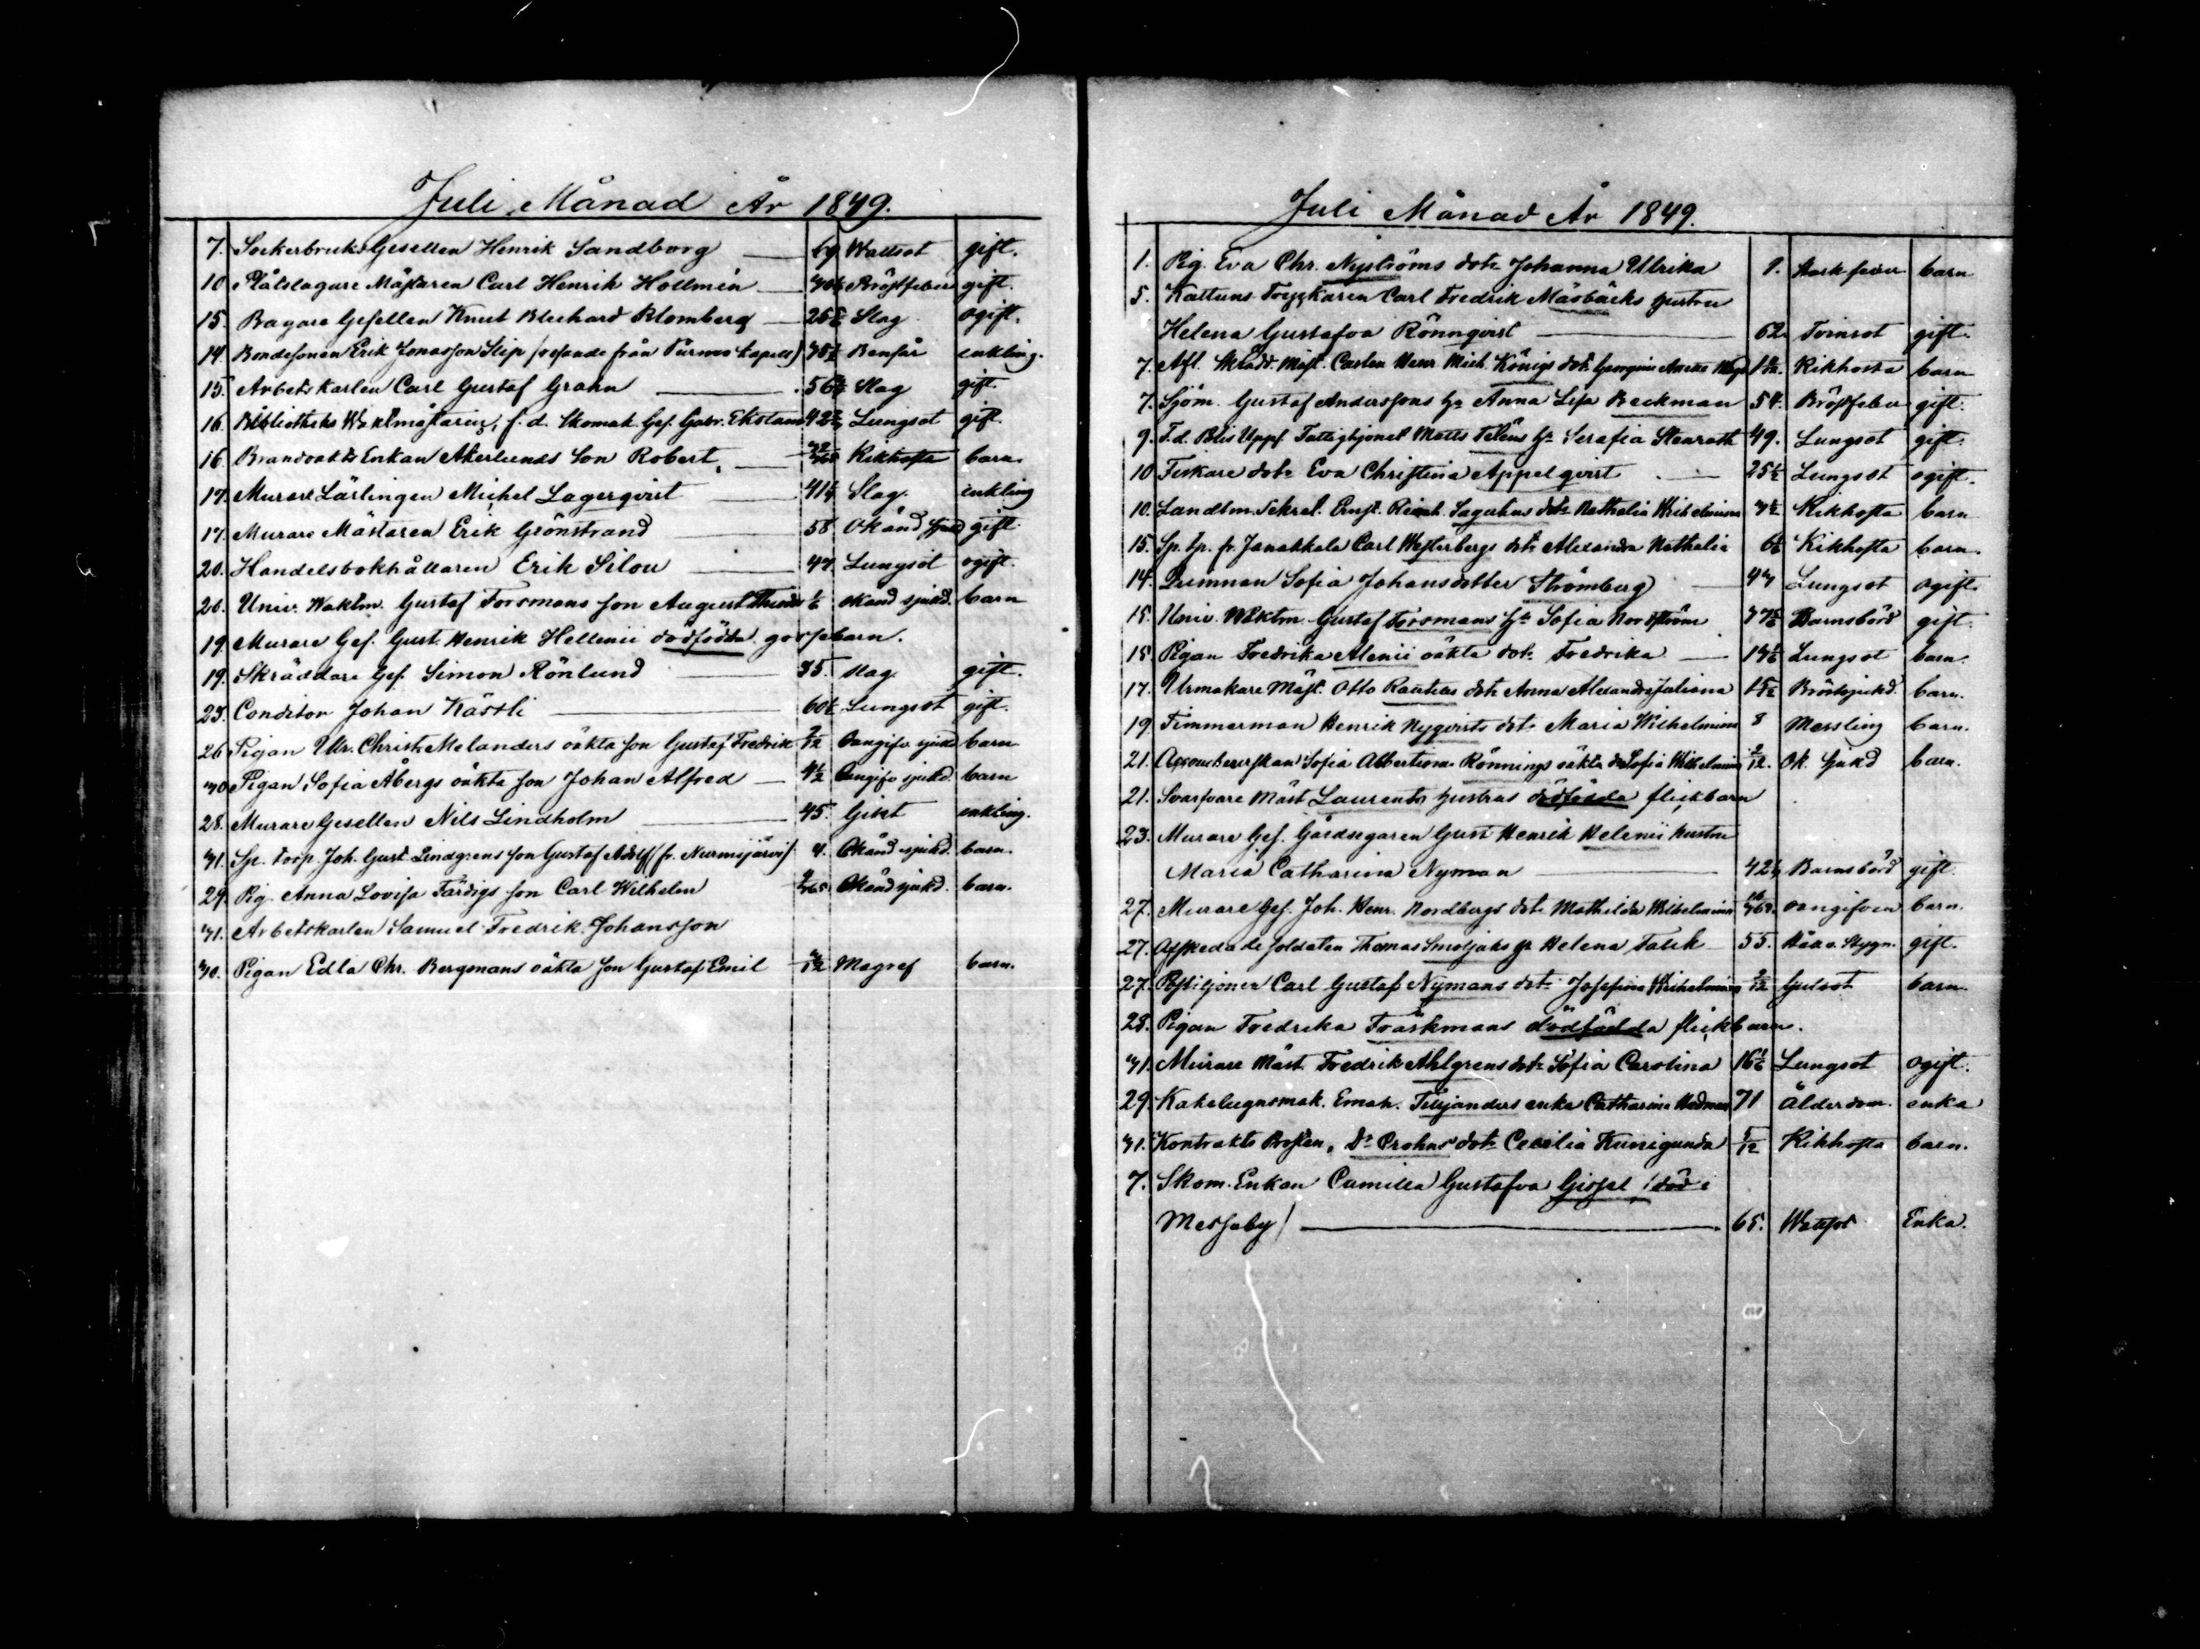 Juli Månad År 1849.
7. Sockerbruks Gesellen Henrik Sandborg 69 Wattsot gift.
10 Plåtslagare Mästaren Carl Henrik Hollmén Bröstfeber gift.
15. Bagare Gesellen Knut Blomberg Slag ogift.
14. Bondesonen Erik Jonasson Slip Bensår enkling.
15 Arbetskarlen Carl Gustaf Grahn Slag gift.
16. Bibliotheks f. d. Skomak. Ges. Gabr. Ekstam Lungsot gift.
16. Brandvakts Enkan Åkerlunds Son Robert, Kikhosta barn.
17. Murare Lärlingen Michel Lagerqvist Slag. enkling
17. Murare Mästaren Erik Grönstrand 58 Okänd gift.
20. Handelsbokhållaren Erik Silou 47. Lungsot ogift.
20. Univ. Waktm. Gustaf Forsmans son August okänd sjukd. barn
19. Murare Ges. Gust. Henrik Hellenii dödfödda gossebarn.
19. Skräddare Ges. Simon Rönlund 35. slag. gift.
23. Conditor Johan Kästli Lungsot gift.
26 Pigan Ulr. Christ. Melanders oäkta son Gustaf Fredrik Oangifv. sjukd. barn
30 Pigan Sofia Åbergs oäkta son Johan Alfred Oangifv. sjukd. barn
28. Murare Gesellen Nils Lindholm 45. enkling.
31. Sp. torp. Joh. Gust. Lindgrens son Gustaf Adolf (fr. Nurmijärvi) Okänd sjukd. barn.
29. Pig. Anna Lovisa Färdigs son Carl Wilhelm Okänd sjukd. barn.
31. Arbetskarlen Samuel Fredrik Johansson
30. Pigan Edla Chr. Bergmans oäkta son Gustaf Emil Magref barn.
Juli Månad År 1849.
1. Pig. Eva Chr. Nyströms dotr Johanna Ulrika 9. barn
5. Kattuns Tryckaren Carl Fredrik Mårbäcks hustru
Helena Gustafva Rönnqvist 62. Tvinsot gift.
7. Afl. Mäst. Carsten Henr. Mich. Königs dotr Georgina Kikhosta barn
7. Sjöm. Gustaf Anderssons hu Anna Lisa Beckman 54. Bröstfeber gift.
9. F.d. Matts Teléns hu Serafia Stenroth 49. Lungsot gift.
10 Fiskare dotr Eva Christina Appelqvist 25½ Lungsot ogift.
10. Landtm. Sekret. Ernst. Reinh. Sagulins dotr Nathalia Wilhelmina Kikhosta barn
15. Sp. tp. fr. Janakkala Carl Westerbergs dotr Alexandra Nathalia Kikhosta barn.
14. Qvinnan Sofia Johansdotter Strömberg 47 Lungsot ogift.
15. Univ. Waktm. Gustaf Forsmans hu Sofia Nordström Barnsbörd gift.
15. Pigan Fredrika Alenii oäkta dotr Fredrika Lungsot barn.
17. Urmakare Mäst. Otto Rautias dotr Anna Alexandra Juliana Bröstsjukd. barn.
19 Timmerman Henrik Nyqvists dotr Maria Wilhelmina 8 Messling barn.
21. Accoucherskan Sofia Albertina Rönnings oäkta dr Sofia Wilhelmina Ok. sjukd barn.
21. Svarfvare Mäst. Laurents hustrus dödfödda flickbarn
23. Murare Ges. Gårdsegaren Gust. Henrik Helenii hustru
Maria Catharina Nyman Barnsbörd gift.
27. Murare Ges. Joh. Henr. Nordbergs dotr Mathilda Wilhelmina oangifven barn.
27. Afskedade soldaten Thomas Smoljaks hu Helena Falck 55. Håll o. Stygn. gift.
27. Postiljonen Carl Gustaf Nymans dotr Josefina Wilhelmina Gulsot barn.
28. Pigan Fredrika Träskmans dödfödda flickbarn.
31. Murare Mäst. Fredrik Ahlgrens dotr Sofia Carolina Lungsot ogift.
29. Kakelugnsmak. Eman. Teljanders enka Catharina Hedman 71 Ålderdom. enka
31. Kontrakts Prosten, Dr Crohns dotr Cecilia Kunigunda Kikhosta barn.
7. Skom. Enkan Camilla Gustafva (död i
Messuby) 65. Wattsot Enka.